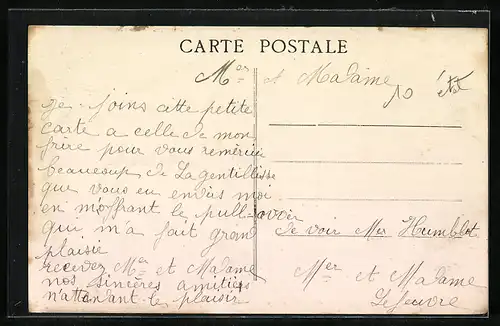 CARTE POSTALE
Mer et Madame
je joins cette petite
carte a celle de mon
frère pour vous remercier
beaucoup de la gentillisse
que vous en envers moi
en m'offrant le pull-over
qui m'a fait grand
plaisir
recevez Mer et Madame
nos sincères amitiés
n'attendant le plaisir
de voir Mer Humblot
Mer et Madame
Lefeuvre